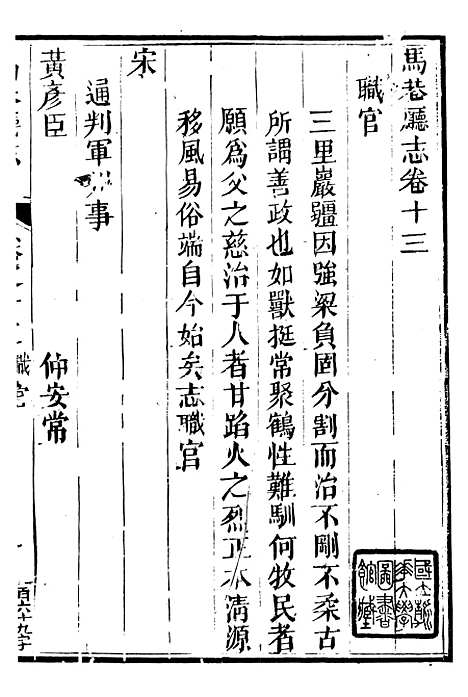 馬巷廳志卷十三
職官
三里巖疆因強梁負固分割而治不剛不柔古
所謂善政也如獸挺常聚鶴性難馴何牧民者
願為父之慈治于人者甘蹈火之烈正本清源
移風易俗端自今始矣志職官
宋
通判軍州事
黃彥臣
仲安常
職官
國立暨
南大學
圖書
館藏